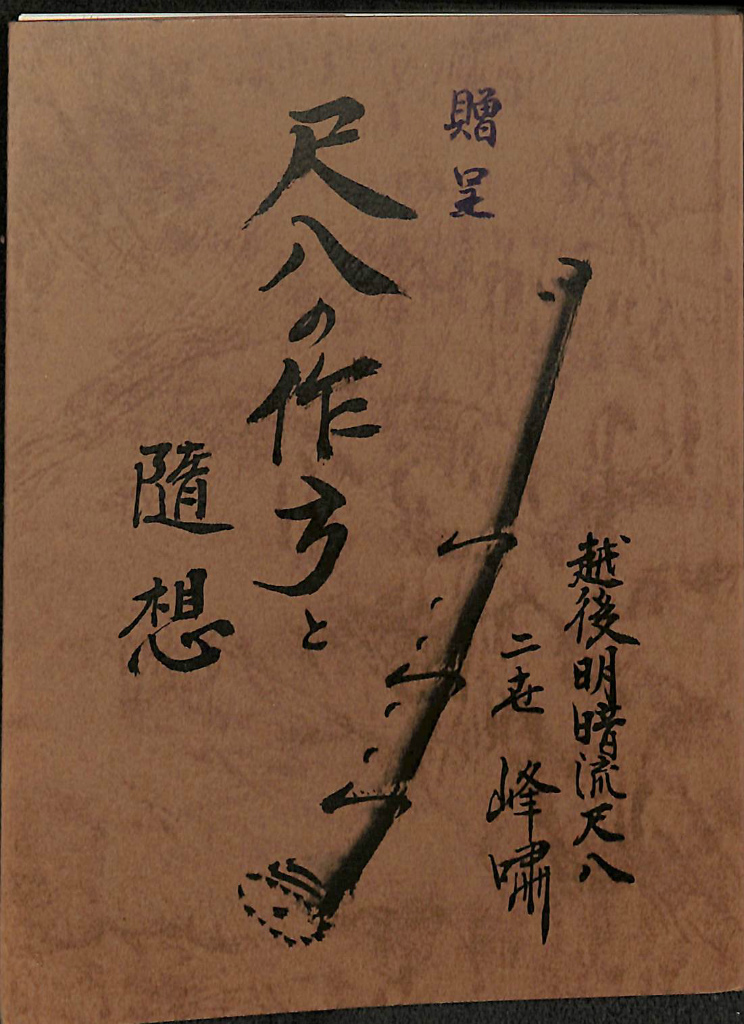 越後明暗流尺八
二世 峰嘯
贈呈
尺八の作方と
隨想